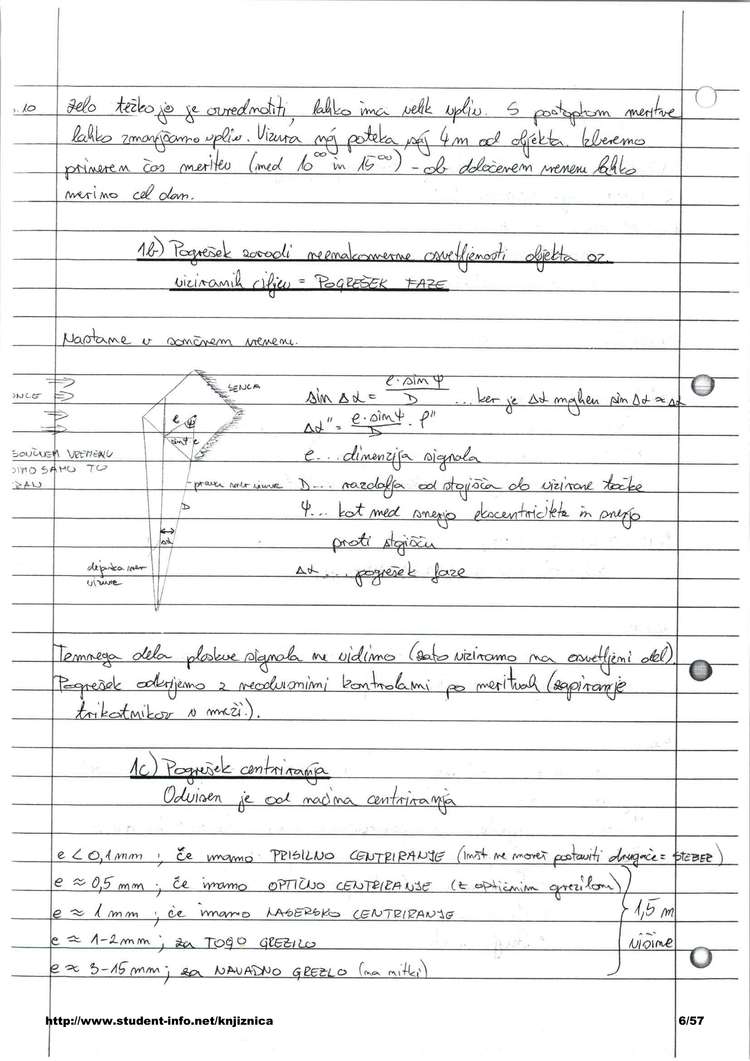 .. 10 zelo težko jo je ovrednotiti, lahko ima velik vpliv. S postopkom meritve
lahko zmanjšamo vpliv. Vizura naj poteka vsaj 4m od objekta. Izberemo
primeren čas meritev (med 10⁰⁰ in 15⁰⁰) - ob določenem vremenu lahko
merimo cel dan.
1b) Pogrešek zaradi neenakomerne osvetljenosti objekta oz.
viziranih ciljev = POGREŠEK FAZE
Nastane v sončnem vremenu.
SENCA
e ψ
prava smer vizure
D
Δα
dejanska smer
vizure
ONCE
SONČNEM VREMENU
DIMO SAMO TO
sin Δα = e·sin ψ / D ... ker je Δα majhen sin Δα ≈ Δα
Δα" = e·sin ψ / D · ρ"
e ... dimenzija signala
D ... razdalja od stojišča do vizirane točke
ψ ... kot med smerjo ekscentricitete in smerjo
proti stojišču
Δα ... pogrešek faze
Temnega dela ploskve signala ne vidimo (zato viziramo na osvetljeni del).
Pogrešek odkrijemo z neodvisnimi kontrolami po meritvah (zapiranje
trikotnikov v mreži).
1c) Pogrešek centriranja
Odvisen je od načina centriranja
e < 0,1 mm ; če imamo PRISILNO CENTRIRANJE (inšt ne moreš postaviti drugače = STEBER)
e ≈ 0,5 mm ; če imamo OPTIČNO CENTRIRANJE (z optičnim grezilom)
e ≈ 1 mm ; če imamo LASERSKO CENTRIRANJE
e ≈ 1-2mm ; za TOGO GREZILO
e ≈ 3-15 mm ; za NAVADNO GREZLO (na nitki)
1,5 m
višine
http://www.student-info.net/knjiznica 6/57